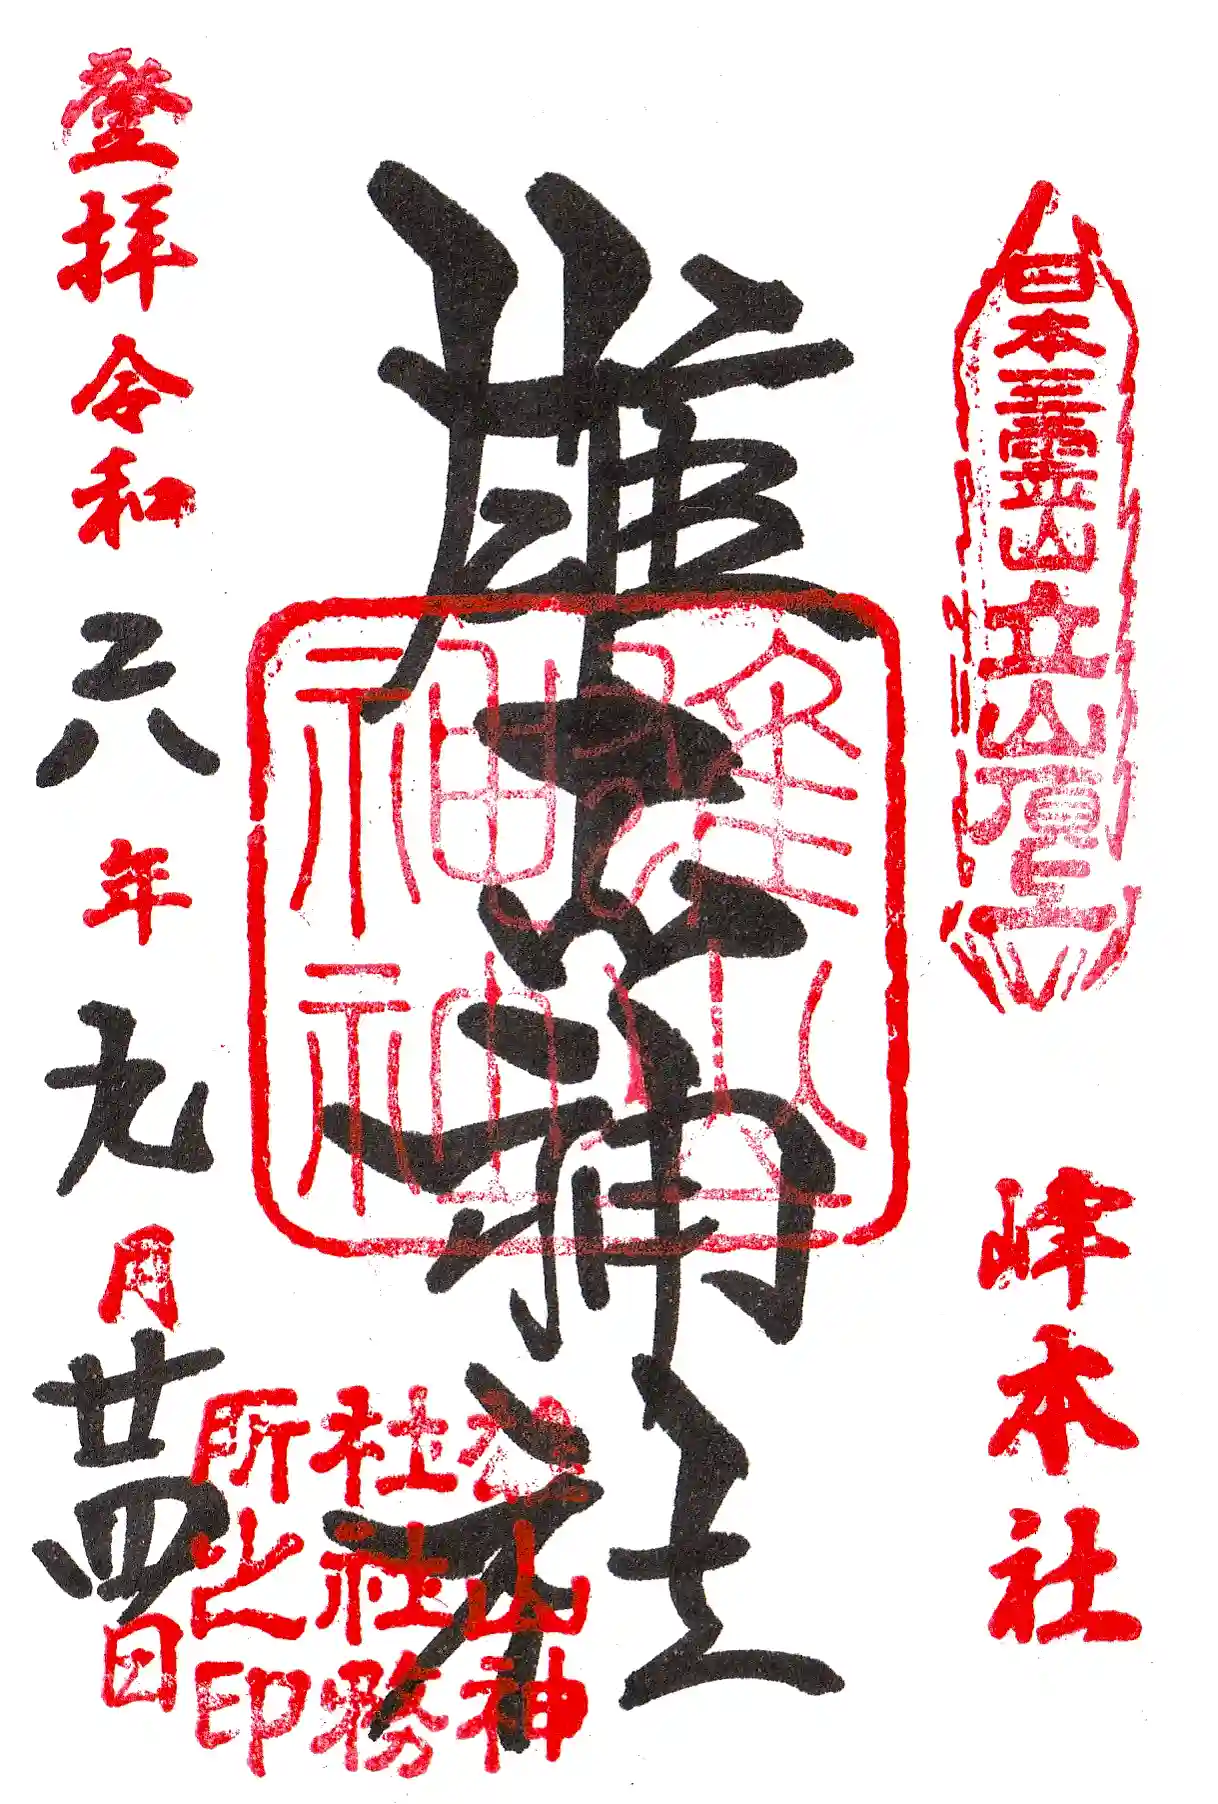 日本三霊山立山頂上
峰本社
雄山神社
雄山
神社
雄山神
社社務
所之印
登拝令和六年九月廿四日